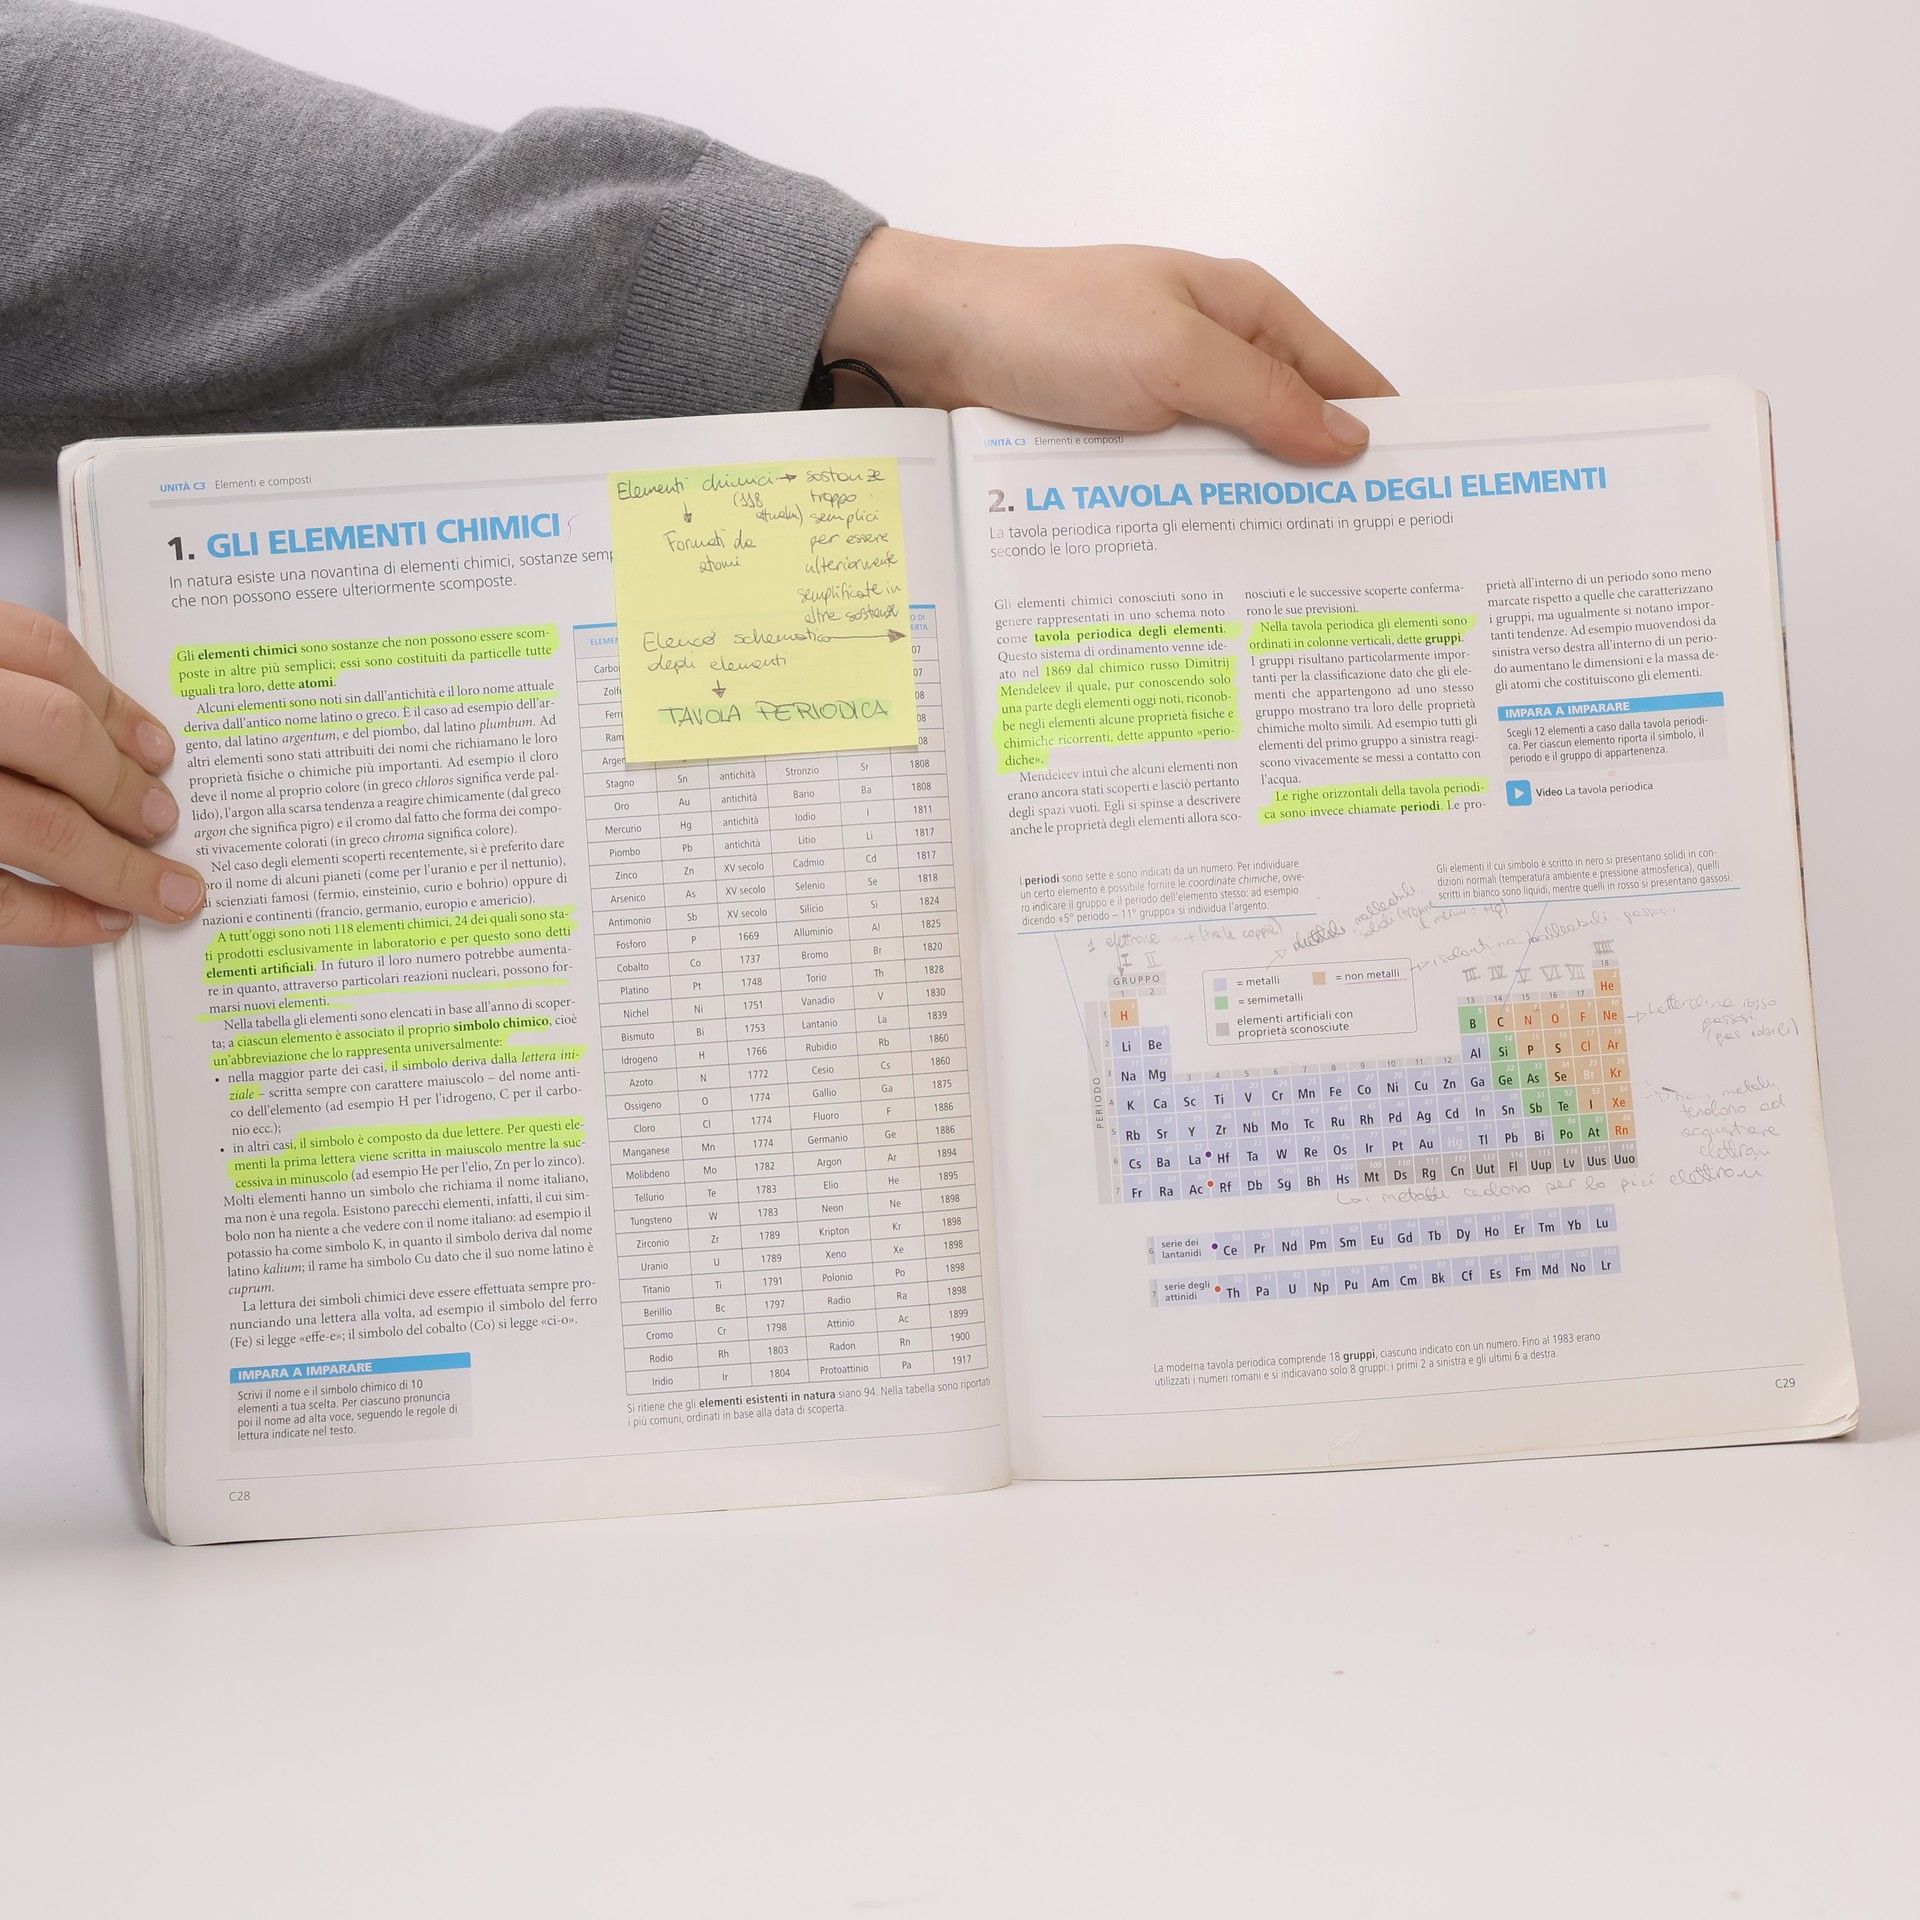 UNITÀ C3 Elementi e composti
1. GLI ELEMENTI CHIMICI
In natura esiste una novantina di elementi chimici, sostanze semp
che non possono essere ulteriormente scomposte.
Gli elementi chimici sono sostanze che non possono essere scom-
poste in altre più semplici; essi sono costituiti da particelle tutte
uguali tra loro, dette atomi.
Alcuni elementi sono noti sin dall'antichità e il loro nome attuale
deriva dall'antico nome latino o greco. È il caso ad esempio dell'ar-
gento, dal latino argentum, e del piombo, dal latino plumbum. Ad
altri elementi sono stati attribuiti dei nomi che richiamano le loro
proprietà fisiche o chimiche più importanti. Ad esempio il cloro
deve il nome al proprio colore (in greco chloros significa verde pal-
lido), l'argon alla scarsa tendenza a reagire chimicamente (dal greco
argon che significa pigro) e il cromo dal fatto che forma dei compo-
sti vivacemente colorati (in greco chroma significa colore).
Nel caso degli elementi scoperti recentemente, si è preferito dare
oro il nome di alcuni pianeti (come per l'uranio e per il nettunio),
di scienziati famosi (fermio, einsteinio, curio e bohrio) oppure di
nazioni e continenti (francio, germanio, europio e americio).
A tutt'oggi sono noti 118 elementi chimici, 24 dei quali sono sta-
ti prodotti esclusivamente in laboratorio e per questo sono detti
elementi artificiali. In futuro il loro numero potrebbe aumenta-
re in quanto, attraverso particolari reazioni nucleari, possono for-
marsi nuovi elementi.
Nella tabella gli elementi sono elencati in base all'anno di scoper-
ta; a ciascun elemento è associato il proprio simbolo chimico, cioè
un'abbreviazione che lo rappresenta universalmente:
• nella maggior parte dei casi, il simbolo deriva dalla lettera ini-
ziale – scritta sempre con carattere maiuscolo – del nome anti-
co dell'elemento (ad esempio H per l'idrogeno, C per il carbo-
nio ecc.);
• in altri casi, il simbolo è composto da due lettere. Per questi ele-
menti la prima lettera viene scritta in maiuscolo mentre la suc-
cessiva in minuscolo (ad esempio He per l'elio, Zn per lo zinco).
Molti elementi hanno un simbolo che richiama il nome italiano,
ma non è una regola. Esistono parecchi elementi, infatti, il cui sim-
bolo non ha niente a che vedere con il nome italiano: ad esempio il
potassio ha come simbolo K, in quanto il simbolo deriva dal nome
latino kalium; il rame ha simbolo Cu dato che il suo nome latino è
cuprum.
La lettura dei simboli chimici deve essere effettuata sempre pro-
nunciando una lettera alla volta, ad esempio il simbolo del ferro
(Fe) si legge «effe-e»; il simbolo del cobalto (Co) si legge «ci-o».
IMPARA A IMPARARE
Scrivi il nome e il simbolo chimico di 10
elementi a tua scelta. Per ciascuno pronuncia
poi il nome ad alta voce, seguendo le regole di
lettura indicate nel testo.
C28
Elementi chimici → sostanze
(118 attualm) troppo
semplici
Formati da per essere
atomi ulteriormente
semplificate in
altre sostanze
Elenco schematico
degli elementi
TAVOLA PERIODICA
ELEMEN DI
ERTA
Carbo 07
Zolf 07
Ferr 08
Ram 08
Argen 08
Stagno Sn antichità Stronzio Sr 1808
Oro Au antichità Bario Ba 1808
Mercurio Hg antichità Iodio I 1811
Piombo Pb antichità Litio Li 1817
Zinco Zn XV secolo Cadmio Cd 1817
Arsenico As XV secolo Selenio Se 1818
Antimonio Sb XV secolo Silicio Si 1824
Fosforo P 1669 Alluminio Al 1825
Cobalto Co 1737 Bromo Br 1820
Platino Pt 1748 Torio Th 1828
Nichel Ni 1751 Vanadio V 1830
Bismuto Bi 1753 Lantanio La 1839
Idrogeno H 1766 Rubidio Rb 1860
Azoto N 1772 Cesio Cs 1860
Ossigeno O 1774 Gallio Ga 1875
Cloro Cl 1774 Fluoro F 1886
Manganese Mn 1774 Germanio Ge 1886
Molibdeno Mo 1782 Argon Ar 1894
Tellurio Te 1783 Elio He 1895
Tungsteno W 1783 Neon Ne 1898
Zirconio Zr 1789 Kripton Kr 1898
Uranio U 1789 Xeno Xe 1898
Titanio Ti 1791 Polonio Po 1898
Berillio Bc 1797 Radio Ra 1898
Cromo Cr 1798 Attinio Ac 1899
Rodio Rh 1803 Radon Rn 1900
Iridio Ir 1804 Protoattinio Pa 1917
Si ritiene che gli elementi esistenti in natura siano 94. Nella tabella sono riportati
i più comuni, ordinati in base alla data di scoperta.
UNITÀ C3 Elementi e composti
2. LA TAVOLA PERIODICA DEGLI ELEMENTI
La tavola periodica riporta gli elementi chimici ordinati in gruppi e periodi
secondo le loro proprietà.
Gli elementi chimici conosciuti sono in
genere rappresentati in uno schema noto
come tavola periodica degli elementi.
Questo sistema di ordinamento venne ide-
ato nel 1869 dal chimico russo Dimitrij
Mendeleev il quale, pur conoscendo solo
una parte degli elementi oggi noti, riconob-
be negli elementi alcune proprietà fisiche e
chimiche ricorrenti, dette appunto «perio-
diche».
Mendeleev intuì che alcuni elementi non
erano ancora stati scoperti e lasciò pertanto
degli spazi vuoti. Egli si spinse a descrivere
anche le proprietà degli elementi allora sco-
nosciuti e le successive scoperte conferma-
rono le sue previsioni.
Nella tavola periodica gli elementi sono
ordinati in colonne verticali, dette gruppi.
I gruppi risultano particolarmente impor-
tanti per la classificazione dato che gli ele-
menti che appartengono ad uno stesso
gruppo mostrano tra loro delle proprietà
chimiche molto simili. Ad esempio tutti gli
elementi del primo gruppo a sinistra reagi-
scono vivacemente se messi a contatto con
l'acqua.
Le righe orizzontali della tavola periodi-
ca sono invece chiamate periodi. Le pro-
prietà all'interno di un periodo sono meno
marcate rispetto a quelle che caratterizzano
i gruppi, ma ugualmente si notano impor-
tanti tendenze. Ad esempio muovendosi da
sinistra verso destra all'interno di un perio-
do aumentano le dimensioni e la massa de-
gli atomi che costituiscono gli elementi.
IMPARA A IMPARARE
Scegli 12 elementi a caso dalla tavola periodi-
ca. Per ciascun elemento riporta il simbolo, il
periodo e il gruppo di appartenenza.
Video La tavola periodica
I periodi sono sette e sono indicati da un numero. Per individuare
un certo elemento è possibile fornire le coordinate chimiche, ovve-
ro indicare il gruppo e il periodo dell'elemento stesso: ad esempio
dicendo «5° periodo – 11° gruppo» si individua l'argento.
Gli elementi il cui simbolo è scritto in nero si presentano solidi in con-
dizioni normali (temperatura ambiente e pressione atmosferica), quelli
scritti in bianco sono liquidi, mentre quelli in rosso si presentano gassosi.
1 elettrone in +
I II
GRUPPO
1 2
= metalli = non metalli
= semimetalli
elementi artificiali con
proprietà sconosciute
III IV V VI VII
18
13 14 15 16 17
PERIODO
1 H He
2 Li Be B C N O F Ne
3 Na Mg 3 4 5 6 7 8 9 10 11 12 Al Si P S Cl Ar
4 K Ca Sc Ti V Cr Mn Fe Co Ni Cu Zn Ga Ge As Se Br Kr
5 Rb Sr Y Zr Nb Mo Tc Ru Rh Pd Ag Cd In Sn Sb Te I Xe
6 Cs Ba La Hf Ta W Re Os Ir Pt Au Hg Tl Pb Bi Po At Rn
7 Fr Ra Ac Rf Db Sg Bh Hs Mt Ds Rg Cn Uut Fl Uup Lv Uus Uuo
non metalli
tendono ad
acquistare
elettroni
i metalli cedono per lo più elettroni
6 serie dei
lantanidi Ce Pr Nd Pm Sm Eu Gd Tb Dy Ho Er Tm Yb Lu
7 serie degli
attinidi Th Pa U Np Pu Am Cm Bk Cf Es Fm Md No Lr
La moderna tavola periodica comprende 18 gruppi, ciascuno indicato con un numero. Fino al 1983 erano
utilizzati i numeri romani e si indicavano solo 8 gruppi: i primi 2 a sinistra e gli ultimi 6 a destra.
C29